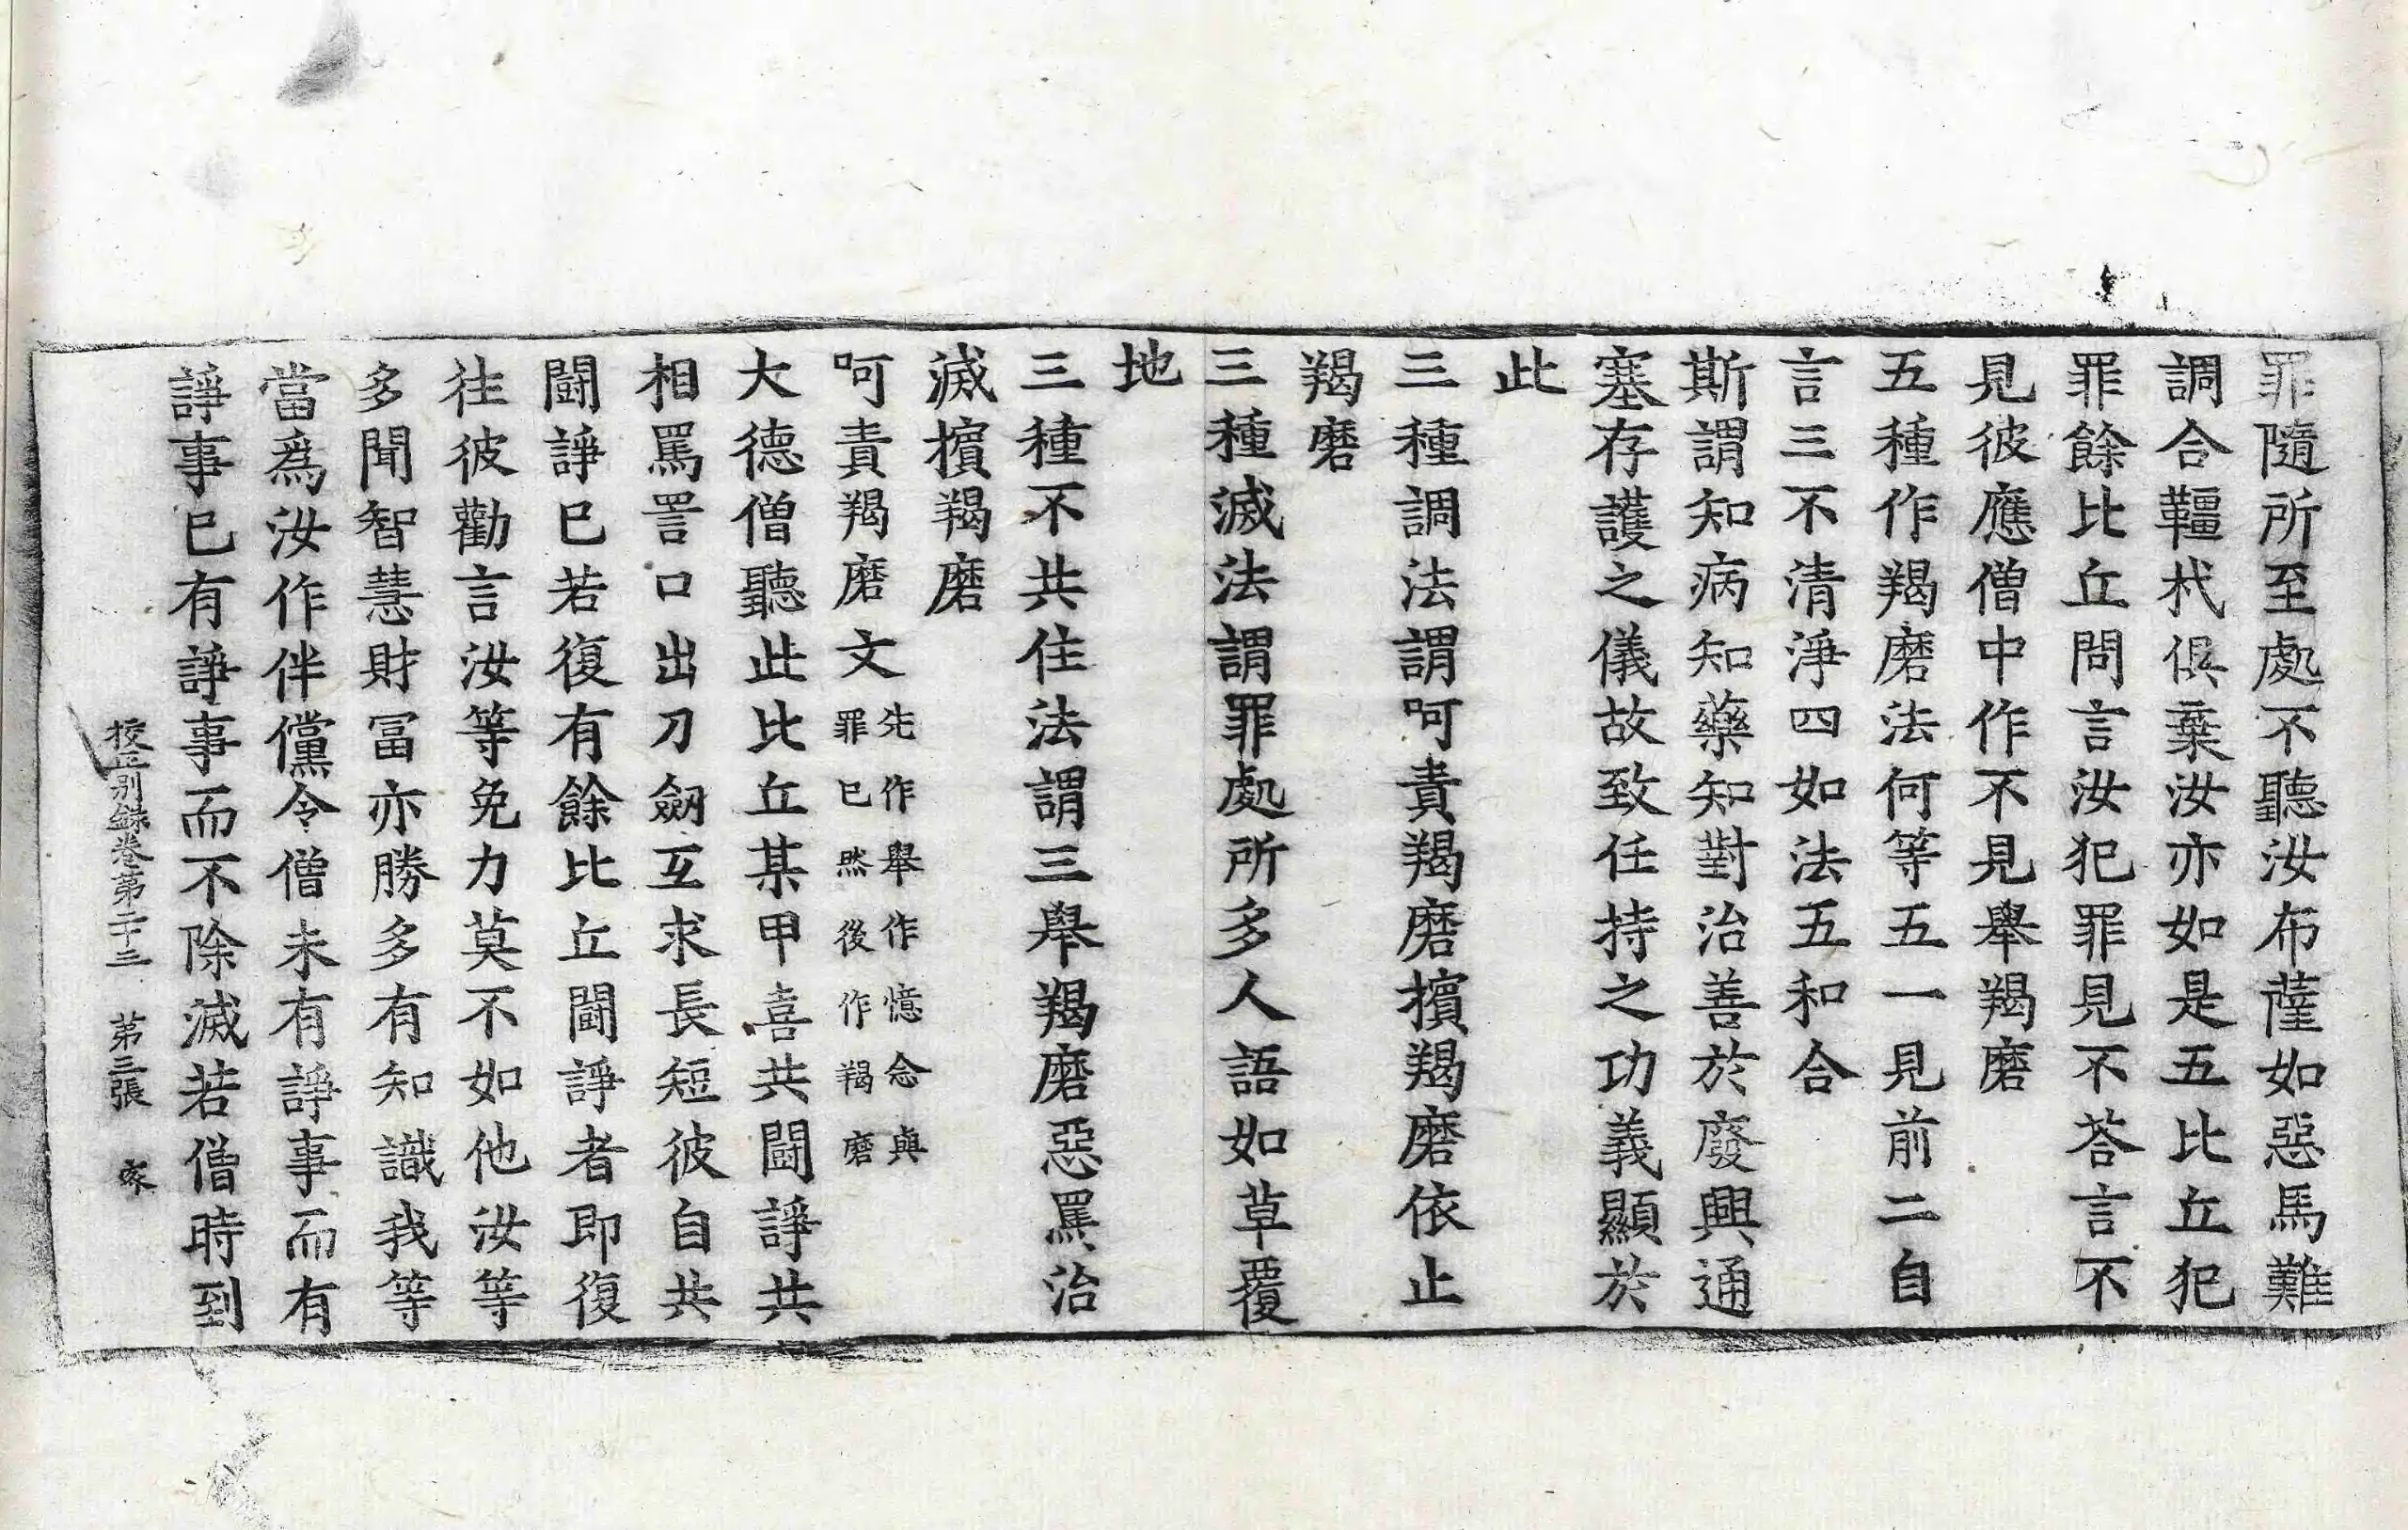 罪隨所至處不聽汝布薩如惡馬難
調合韁杙俱棄汝亦如是五比丘犯
罪餘比丘問言汝犯罪見不荅言不
見彼應僧中作不見舉羯磨
五種作羯磨法何等五一見前二自
言三不清淨四如法五和合
斯謂知病知藥知對治善於廢興通
塞存護之儀故致任持之功義顯於
此
三種調法謂呵責羯磨擯羯磨依止
羯磨
三種滅法謂罪處所多人語如草覆
地
三種不共住法謂三舉羯磨惡罵治
滅擯羯磨
呵責羯磨文先作舉作憶念與罪已然後作羯磨
大德僧聽此比丘某甲喜共鬪諍共
相罵詈口出刀劒互求長短彼自共
鬪諍已若復有餘比丘鬪諍者即復
往彼勸言汝等免力莫不如他汝等
多聞智慧財冨亦勝多有知識我等
當爲汝作伴儻令僧未有諍事而有
諍事已有諍事而不除滅若僧時到
校正别録卷第二十三 第三張 家